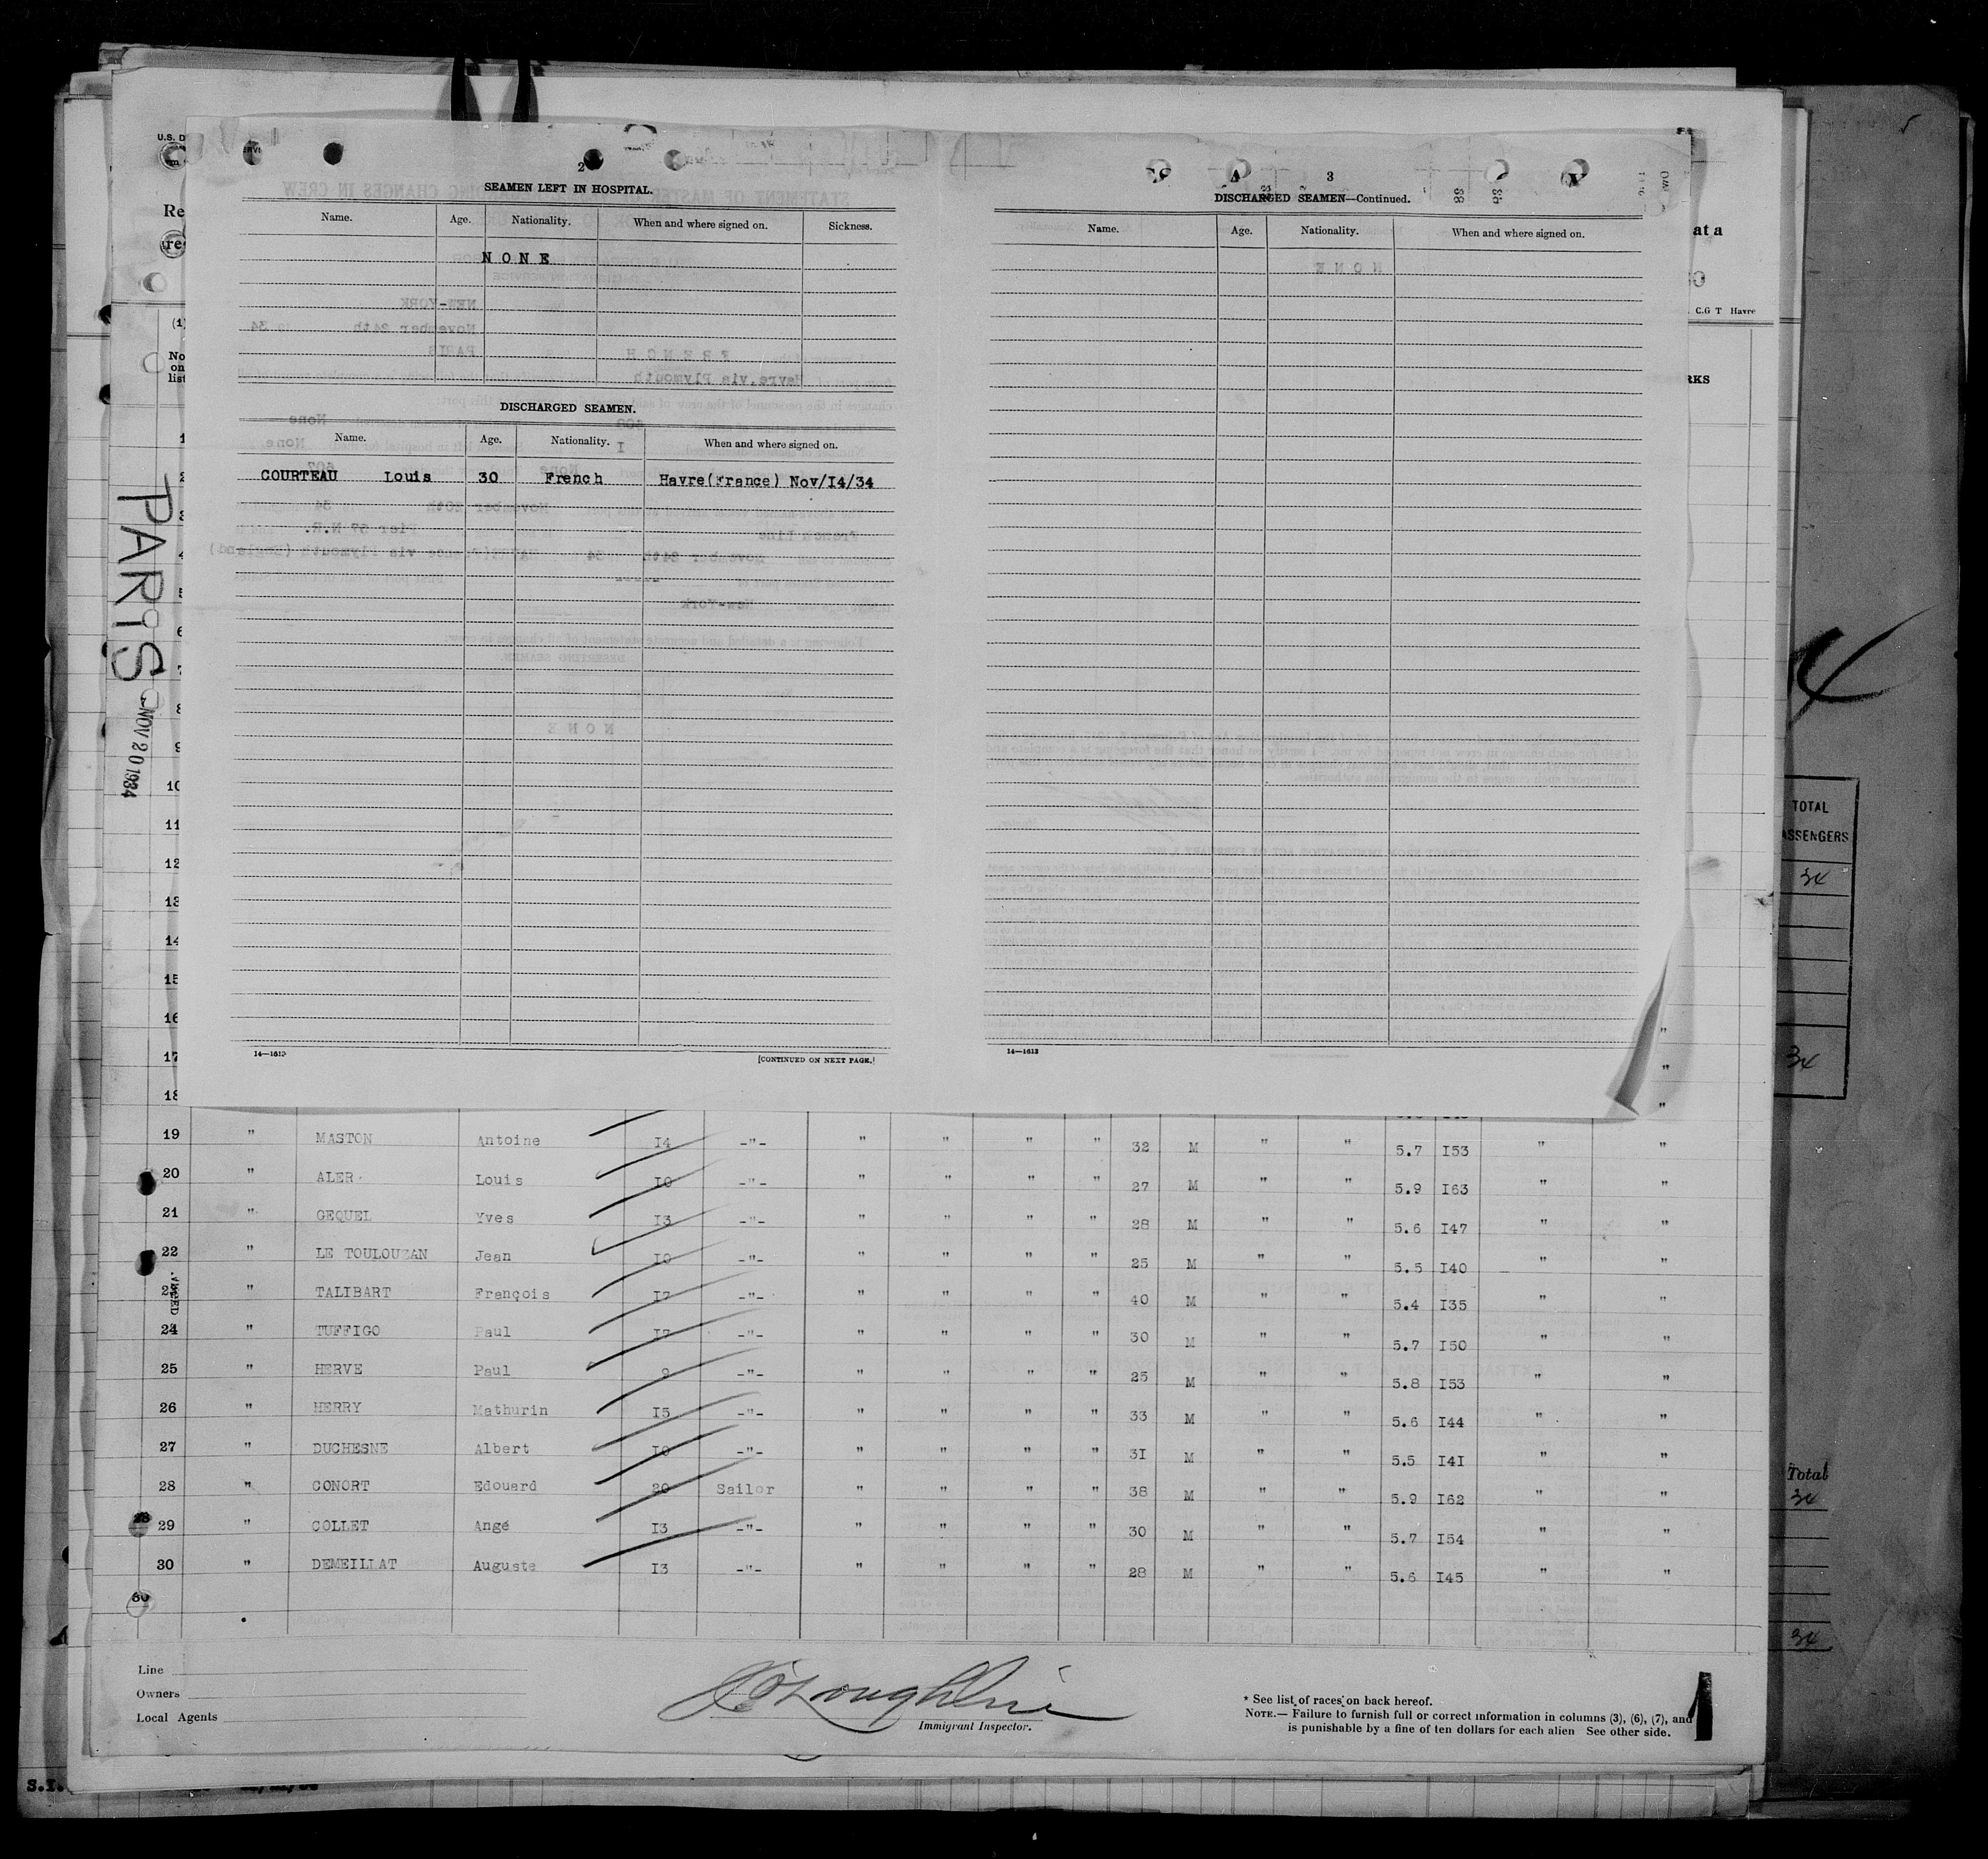 2
SEAMEN LEFT IN HOSPITAL.
Name. Age. Nationality. When and where signed on. Sickness.
N O N E
DISCHARGED SEAMEN.
Name. Age. Nationality. When and where signed on.
COURTEAU Louis 30 French Havre(France) Nov/I4/34
14—1613
[CONTINUED ON NEXT PAGE.]
3
DISCHARGED SEAMEN—Continued.
Name. Age. Nationality. When and where signed on.
14—1613
U.S. D
Re
(1)
No
on
list
at a
C.G T Havre
RKS
PARIS
NOV 20 1934
1
2
3
4
5
6
7
8
9
10
11
12
13
14
15
16
17
18
19 " MASTON Antoine I4 -"- " " " " 32 M " " 5.7 I53 " "
20 " ALER Louis I0 -"- " " " " 27 M " " 5.9 I63 " "
21 " GEQUEL Yves I3 -"- " " " " 28 M " " 5.6 I47 " "
22 " LE TOULOUZAN Jean I0 -"- " " " " 25 M " " 5.5 I40 " "
23 " TALIBART François I7 -"- " " " " 40 M " " 5.4 I35 " "
24 " TUFFIGO Paul I7 -"- " " " " 30 M " " 5.7 I50 " "
25 " HERVE Paul 9 -"- " " " " 25 M " " 5.8 I53 " "
26 " HERRY Mathurin I5 -"- " " " " 33 M " " 5.6 I44 " "
27 " DUCHESNE Albert I0 -"- " " " " 3I M " " 5.5 I4I " "
28 " CONORT Edouard 20 Sailor " " " " 38 M " " 5.9 I62 " "
29 " COLLET Ange I3 -"- " " " " 30 M " " 5.7 I54 " "
30 " DEMEILLAT Auguste I3 -"- " " " " 28 M " " 5.6 I45 " "
Line
Owners
Local Agents
Immigrant Inspector.
* See list of races on back hereof.
NOTE.— Failure to furnish full or correct information in columns (3), (6), (7), and
is punishable by a fine of ten dollars for each alien See other side.
4
TOTAL
ASSENGERS
34
34
Total
34
34
S.I.